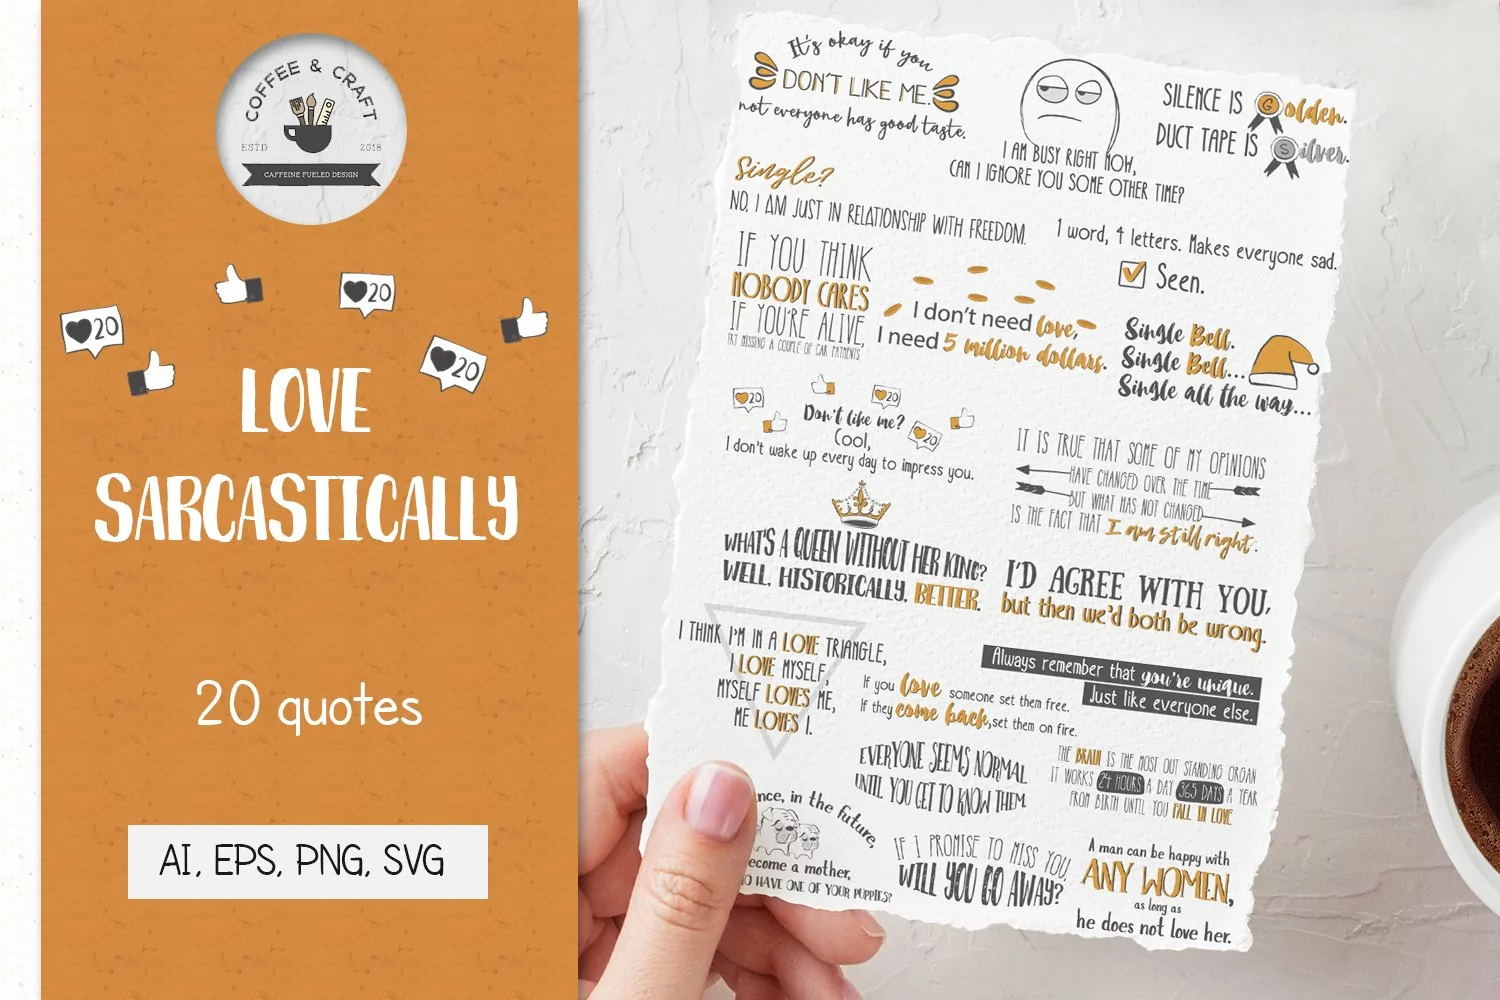 COFFEE & CRAFT
ESTD 2018
CAFFEINE FUELED DESIGN
20
20
20
LOVE
SARCASTICALLY
20 quotes
AI, EPS, PNG, SVG
It's okay if you
DON'T LIKE ME.
not everyone has good taste.
I AM BUSY RIGHT NOW,
CAN I IGNORE YOU SOME OTHER TIME?
SILENCE IS Golden.
DUCT TAPE IS Silver.
Single?
NO, I AM JUST IN RELATIONSHIP WITH FREEDOM.
1 word, 4 letters. Makes everyone sad.
Seen.
IF YOU THINK
NOBODY CARES
IF YOU'RE ALIVE,
TRY MISSING A COUPLE OF CAR PAYMENTS
I don't need love,
I need 5 million dollars.
Single Bell.
Single Bell...
Single all the way...
20
20
20
Don't like me?
Cool,
I don't wake up every day to impress you.
IT IS TRUE THAT SOME OF MY OPINIONS
HAVE CHANGED OVER THE TIME
BUT WHAT HAS NOT CHANGED
IS THE FACT THAT I am still right.
WHAT'S A QUEEN WITHOUT HER KING?
WELL, HISTORICALLY, BETTER.
I'D AGREE WITH YOU,
but then we'd both be wrong.
I THINK I'M IN A LOVE TRIANGLE,
I LOVE MYSELF,
MYSELF LOVES ME,
ME LOVES I.
Always remember that you're unique.
Just like everyone else.
If you love someone set them free.
If they come back, set them on fire.
EVERYONE SEEMS NORMAL
UNTIL YOU GET TO KNOW THEM.
THE BRAIN IS THE MOST OUT STANDING ORGAN
IT WORKS 24 HOURS A DAY 365 DAYS A YEAR
FROM BIRTH UNTIL YOU FALL IN LOVE
in the future,
a mother,
HAVE ONE OF YOUR PUPPIES?
IF I PROMISE TO MISS YOU,
WILL YOU GO AWAY?
A man can be happy with
ANY WOMEN,
as long as
he does not love her.